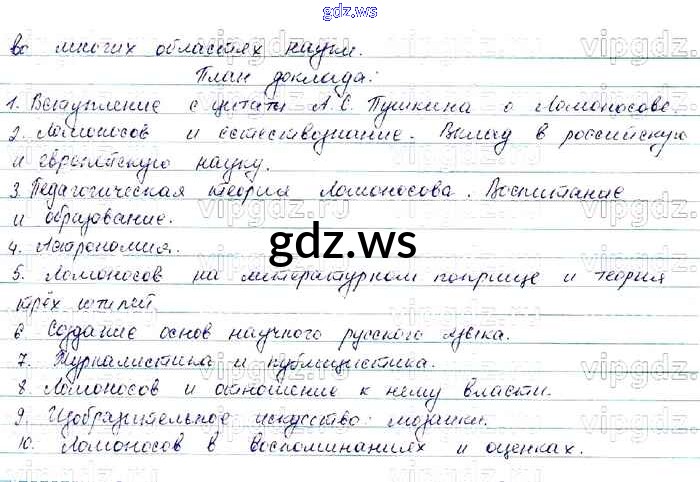 gdz.ws
во многих областях науки.
План доклада:
1. Вступление с цитаты А.С. Пушкина о Ломоносове.
2. Ломоносов и естествознание. Вклад в российскую
и европейскую науку.
3. Педагогическая теория Ломоносова. Воспитание
и образование.
gdz.ws
4. Астрономия.
5. Ломоносов на литературном поприще и теория
трёх штилей
6 Создание основ научного русского языка.
7. Журналистика и публицистика.
8. Ломоносов и отношение к нему власти.
9. Изобразительное искусство: мозаики.
10. Ломоносов в воспоминаниях и оценках.
gdz.ws